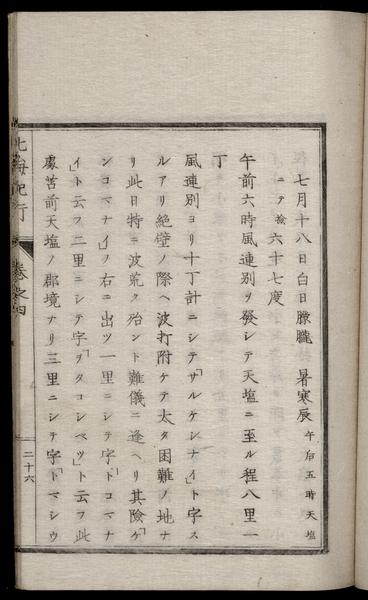 七月十八日白日朦朧　暑寒辰午后五時天塩
ニテ検六十七度
午前六時風連別ヲ發シテ天塩ニ至ル程八里一
丁
風連別ヨリ十丁計ニシテ「サルケシナイ」ト字ス
ルアリ絶壁ノ際ヘ波打附ケテ太タ困難ノ地ナ
リ此日特ニ波荒ク殆ント難儀ニ逢ヘリ其險「ケ
ンコマナイ」ノ右ニ出ツ一里ニシテ字「トコマナ
イ」ト云フ二里ニシテ字「ヲタコシベツ」ト云フ此
處苫前天塩ノ郡境ナリ三里ニシテ字「トマシウ
北海紀行
卷之四
二十六